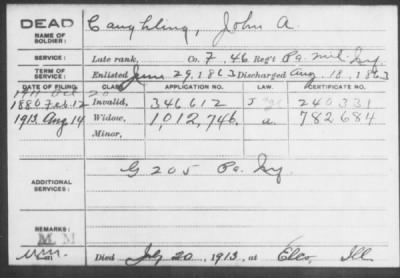 DEAD
NAME OF SOLDIER:
Caughling, John A.
SERVICE:
Late rank, Co. F, 46 Reg't Pa. Mil. Inf
TERM OF SERVICE:
Enlisted June 29, 1863 Discharged Aug. 18, 1863
DATE OF FILING. CLASS. APPLICATION NO. LAW. CERTIFICATE NO.
1880 Feb. 12 Invalid, 346612 J 240331
1913 Aug 14 Widow, 1,012,746 a. 782684
Minor,
ADDITIONAL SERVICES:
G 205 Pa. Inf
REMARKS:
M. M
Died July 20, 1913, at Elco, Ill.